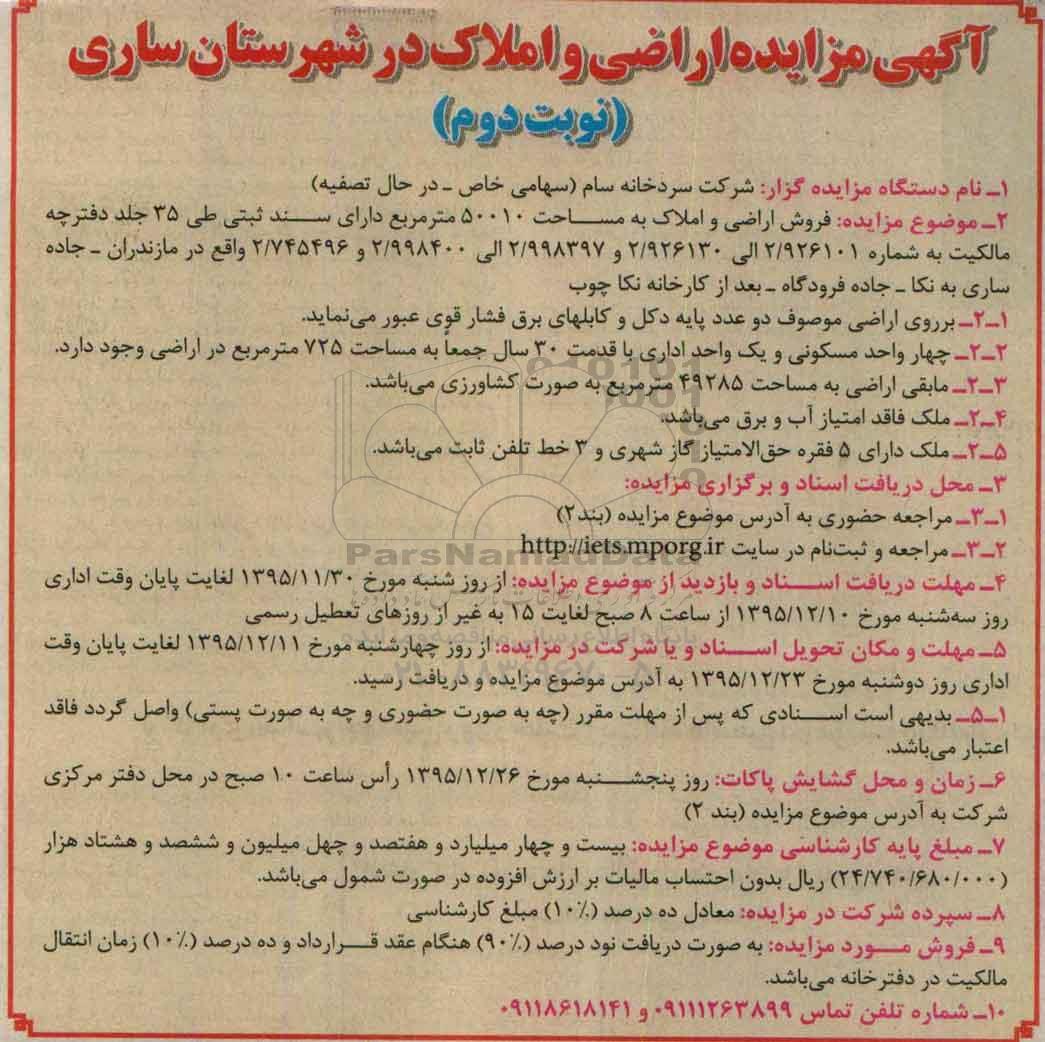 آگهی مزایده اراضی و املاک در شهرستان ساری
(نوبت دوم)
۱ـ نام دستگاه مزایده گزار: شرکت سردخانه سام (سهامی خاص ـ در حال تصفیه)
۲ـ موضوع مزایده: فروش اراضی و املاک به مساحت ۵۰۰۱۰ مترمربع دارای سند ثبتی طی ۳۵ جلد دفترچه
مالکیت به شماره ۲/۹۲۶۱۰۱ الی ۲/۹۲۶۱۳۰ و ۲/۹۹۸۳۹۷ الی ۲/۹۹۸۴۰۰ و ۲/۷۴۵۴۹۶ واقع در مازندران ـ جاده
ساری به نکا ـ جاده فرودگاه ـ بعد از کارخانه نکا چوب
۲ـ۱ـ برروی اراضی موصوف دو عدد پایه دکل و کابلهای برق فشار قوی عبور می‌نماید.
۲ـ۲ـ چهار واحد مسکونی و یک واحد اداری با قدمت ۳۰ سال جمعاً به مساحت ۷۲۵ مترمربع در اراضی وجود دارد.
۲ـ۳ـ مابقی اراضی به مساحت ۴۹۲۸۵ مترمربع به صورت کشاورزی می‌باشد.
۲ـ۴ـ ملک فاقد امتیاز آب و برق می‌باشد.
۲ـ۵ـ ملک دارای ۵ فقره حق‌الامتیاز گاز شهری و ۳ خط تلفن ثابت می‌باشد.
۳ـ محل دریافت اسناد و برگزاری مزایده:
۳ـ۱ـ مراجعه حضوری به آدرس موضوع مزایده (بند۲)
۳ـ۲ـ مراجعه و ثبت‌نام در سایت http://iets.mporg.ir
ParsNamadData
۴ـ مهلت دریافت اسناد و بازدید از موضوع مزایده: از روز شنبه مورخ ۱۳۹۵/۱۱/۳۰ لغایت پایان وقت اداری
روز سه‌شنبه مورخ ۱۳۹۵/۱۲/۱۰ از ساعت ۸ صبح لغایت ۱۵ به غیر از روزهای تعطیل رسمی
۵ـ مهلت و مکان تحویل اسناد و یا شرکت در مزایده: از روز چهارشنبه مورخ ۱۳۹۵/۱۲/۱۱ لغایت پایان وقت
اداری روز دوشنبه مورخ ۱۳۹۵/۱۲/۲۳ به آدرس موضوع مزایده و دریافت رسید.
۵ـ۱ـ بدیهی است اسنادی که پس از مهلت مقرر (چه به صورت حضوری و چه به صورت پستی) واصل گردد فاقد
اعتبار می‌باشد.
۶ـ زمان و محل گشایش پاکات: روز پنجشنبه مورخ ۱۳۹۵/۱۲/۲۶ رأس ساعت ۱۰ صبح در محل دفتر مرکزی
شرکت به آدرس موضوع مزایده (بند ۲)
۷ـ مبلغ پایه کارشناسی موضوع مزایده: بیست و چهار میلیارد و هفتصد و چهل میلیون و ششصد و هشتاد هزار
(۲۴/۷۴۰/۶۸۰/۰۰۰) ریال بدون احتساب مالیات بر ارزش افزوده در صورت شمول می‌باشد.
۸ـ سپرده شرکت در مزایده: معادل ده درصد (۱۰٪) مبلغ کارشناسی
۹ـ فروش مورد مزایده: به صورت دریافت نود درصد (۹۰٪) هنگام عقد قرارداد و ده درصد (۱۰٪) زمان انتقال
مالکیت در دفترخانه می‌باشد.
۱۰ـ شماره تلفن تماس ۰۹۱۱۱۲۶۳۸۹۹ و ۰۹۱۱۸۶۱۸۱۴۱